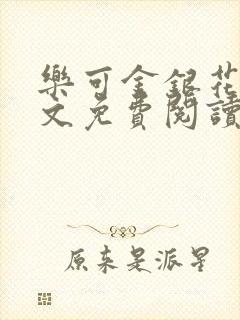 樂可金銀花
文免費閱讀
原来是派星